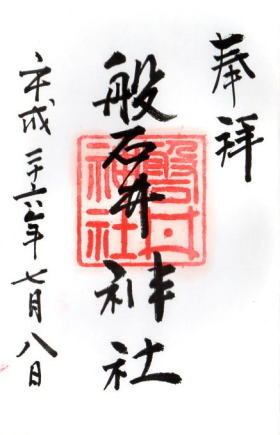 奉拝
磐井神社
磐井
神社
平成二十六年七月八日